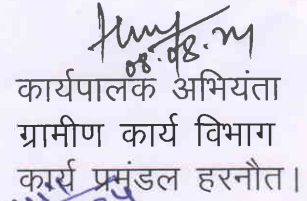 08.08.24
कार्यपालक अभियंता
ग्रामीण कार्य विभाग
कार्य प्रमंडल हरनौत।